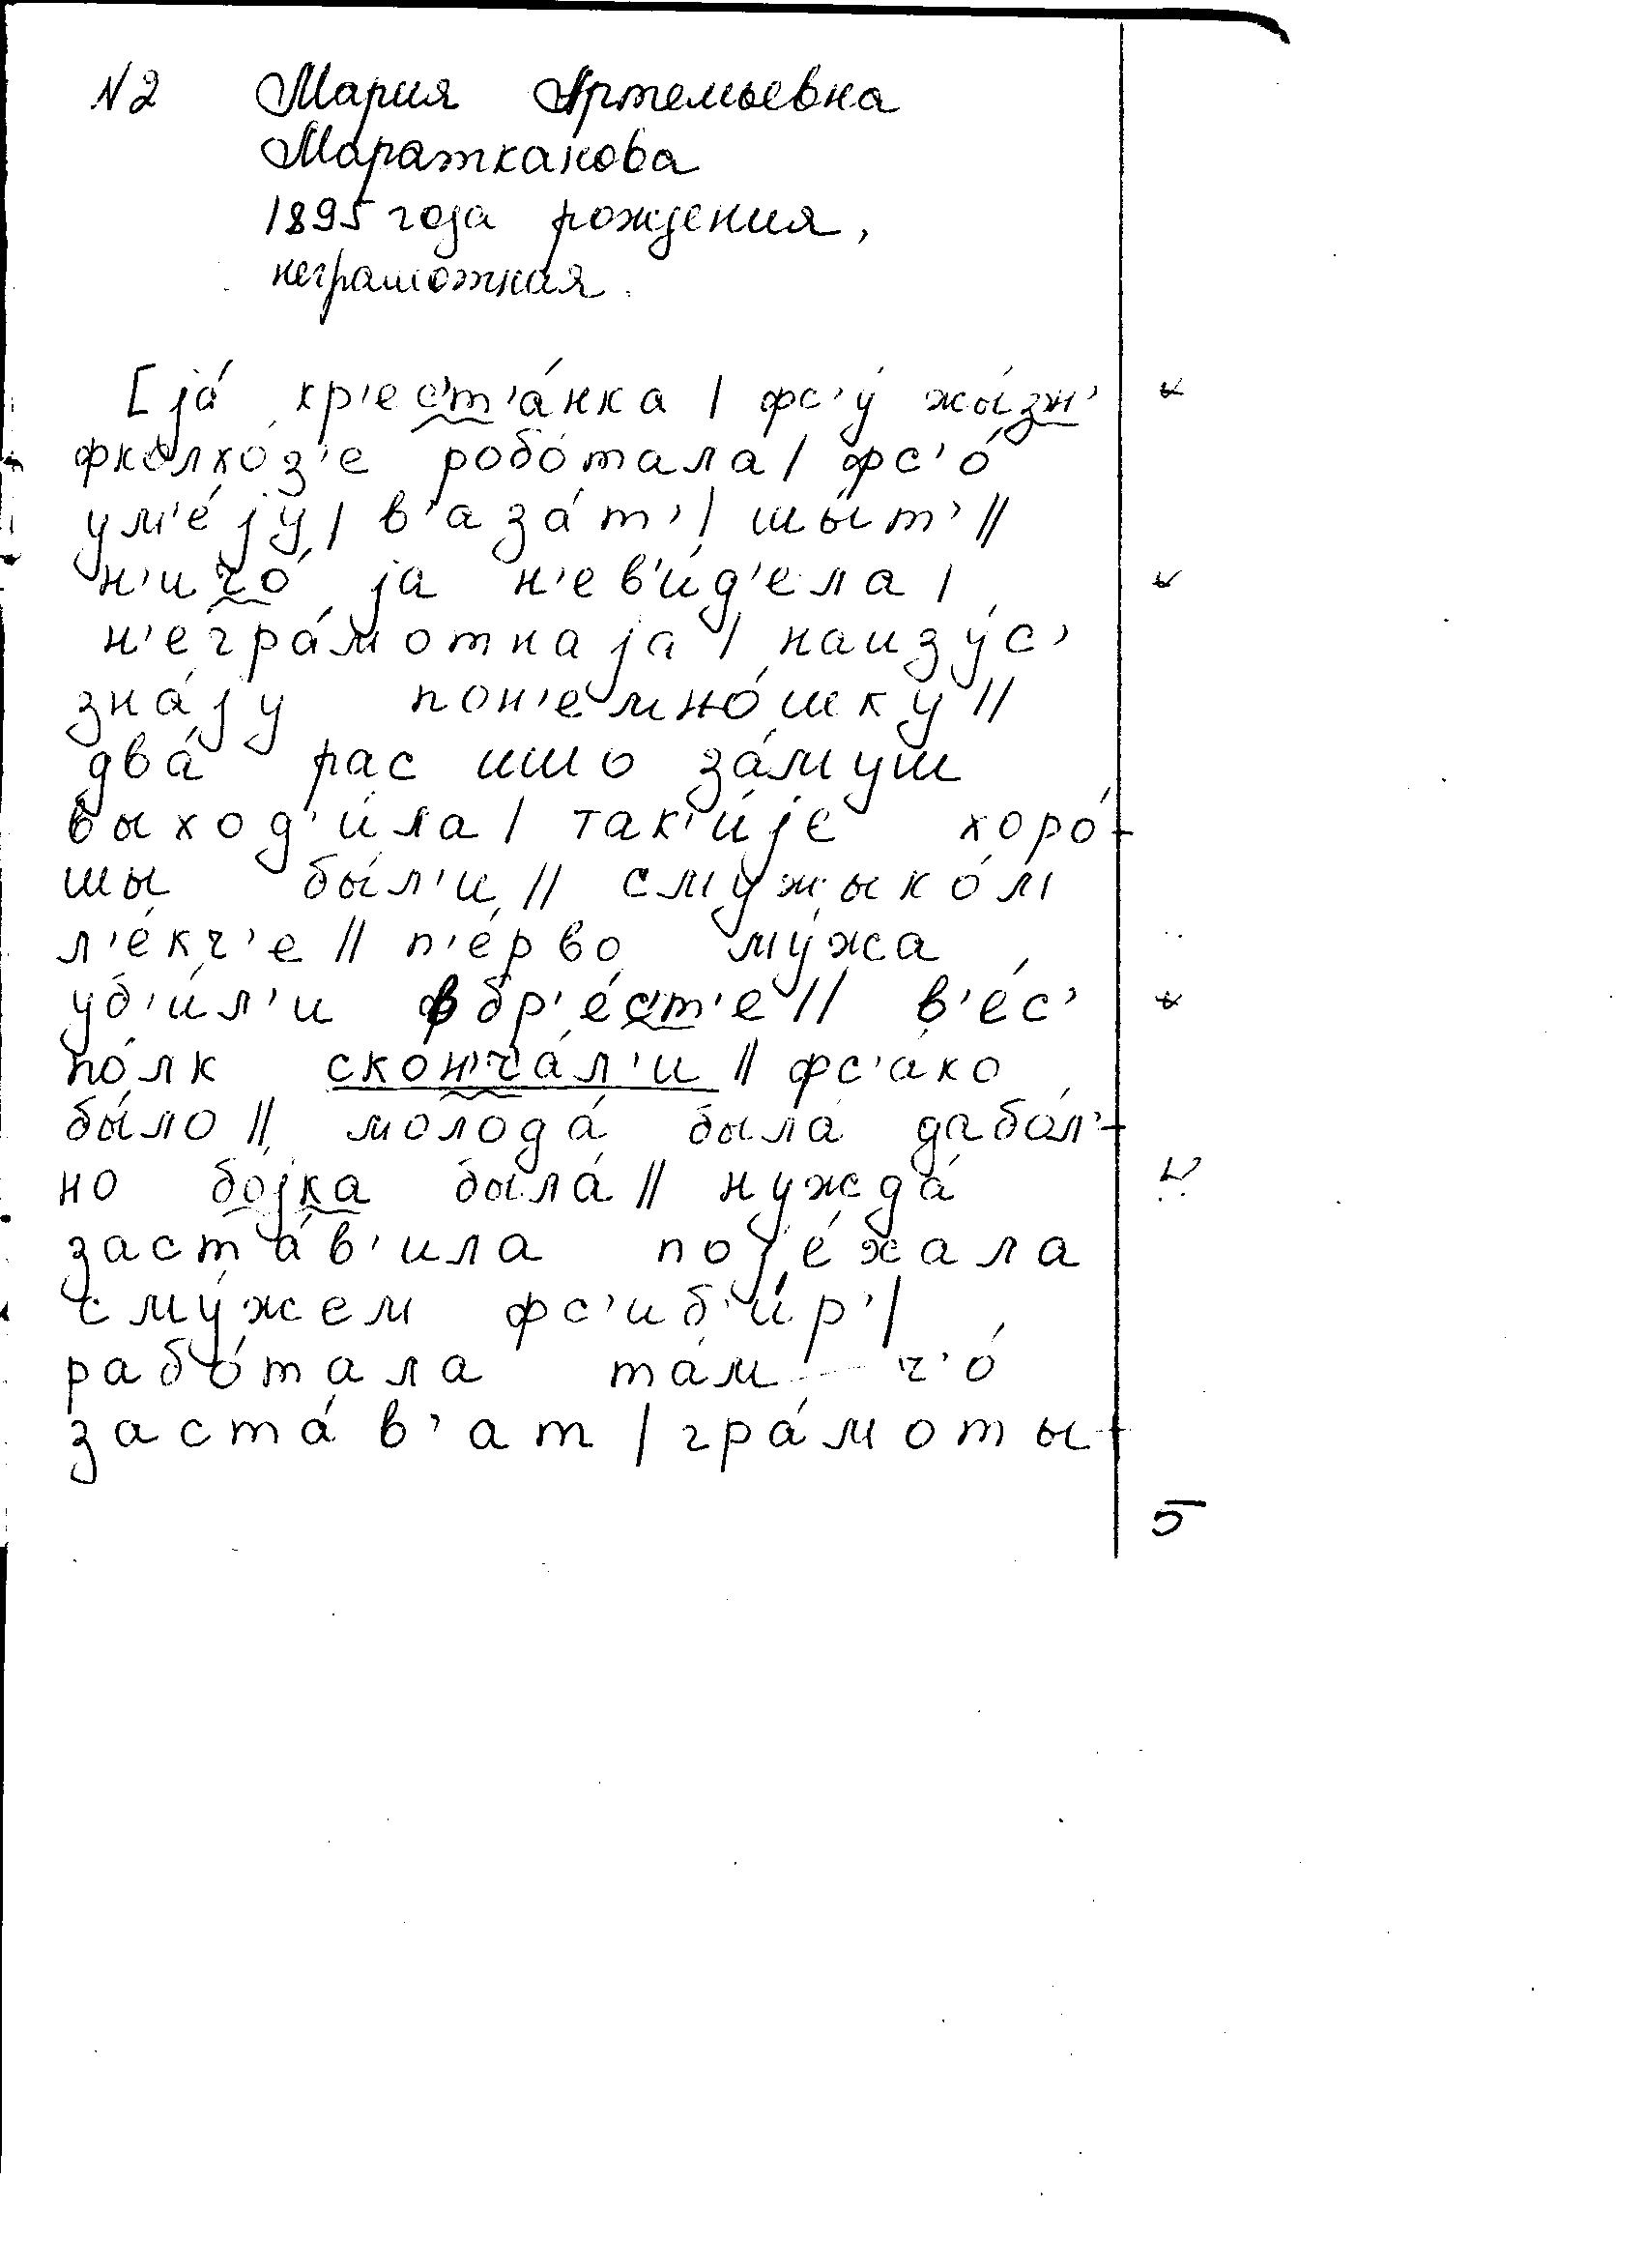 N2 Мария Артемьевна
Маратканова
1895 года рождения,
неграмотная.
[jа́ хр'ес'т'а́нка | фс'у́ жы́зн'
фколхо́з'е робо́тала | фс'о́
ум'е́jу | в'аза́т' | шы́т' ||
н'ичо́ jа н'ев'и́д'ела |
н'егра́мотнаjа | наизу́с'
зна́jу пон'емно́шку ||
два́ рас ишо за́муш
выход'и́ла | так'и́jе хоро́-
шы бы́л'и || смужыко́м
л'е́кч'е || п'е́рво му́жа
уб'и́л'и вбр'е́с'т'е || в'е́с'
по́лк скон'ча́л'и || фс'а́ко
бы́ло || молода́ была́ дабо́л'-
но боjка была́ || нужда́
заста́в'ила поjе́хала
сму́жем фс'иб'и́р' |
рабо́тала та́м ч'о́
заста́в'ат | гра́моты-
5